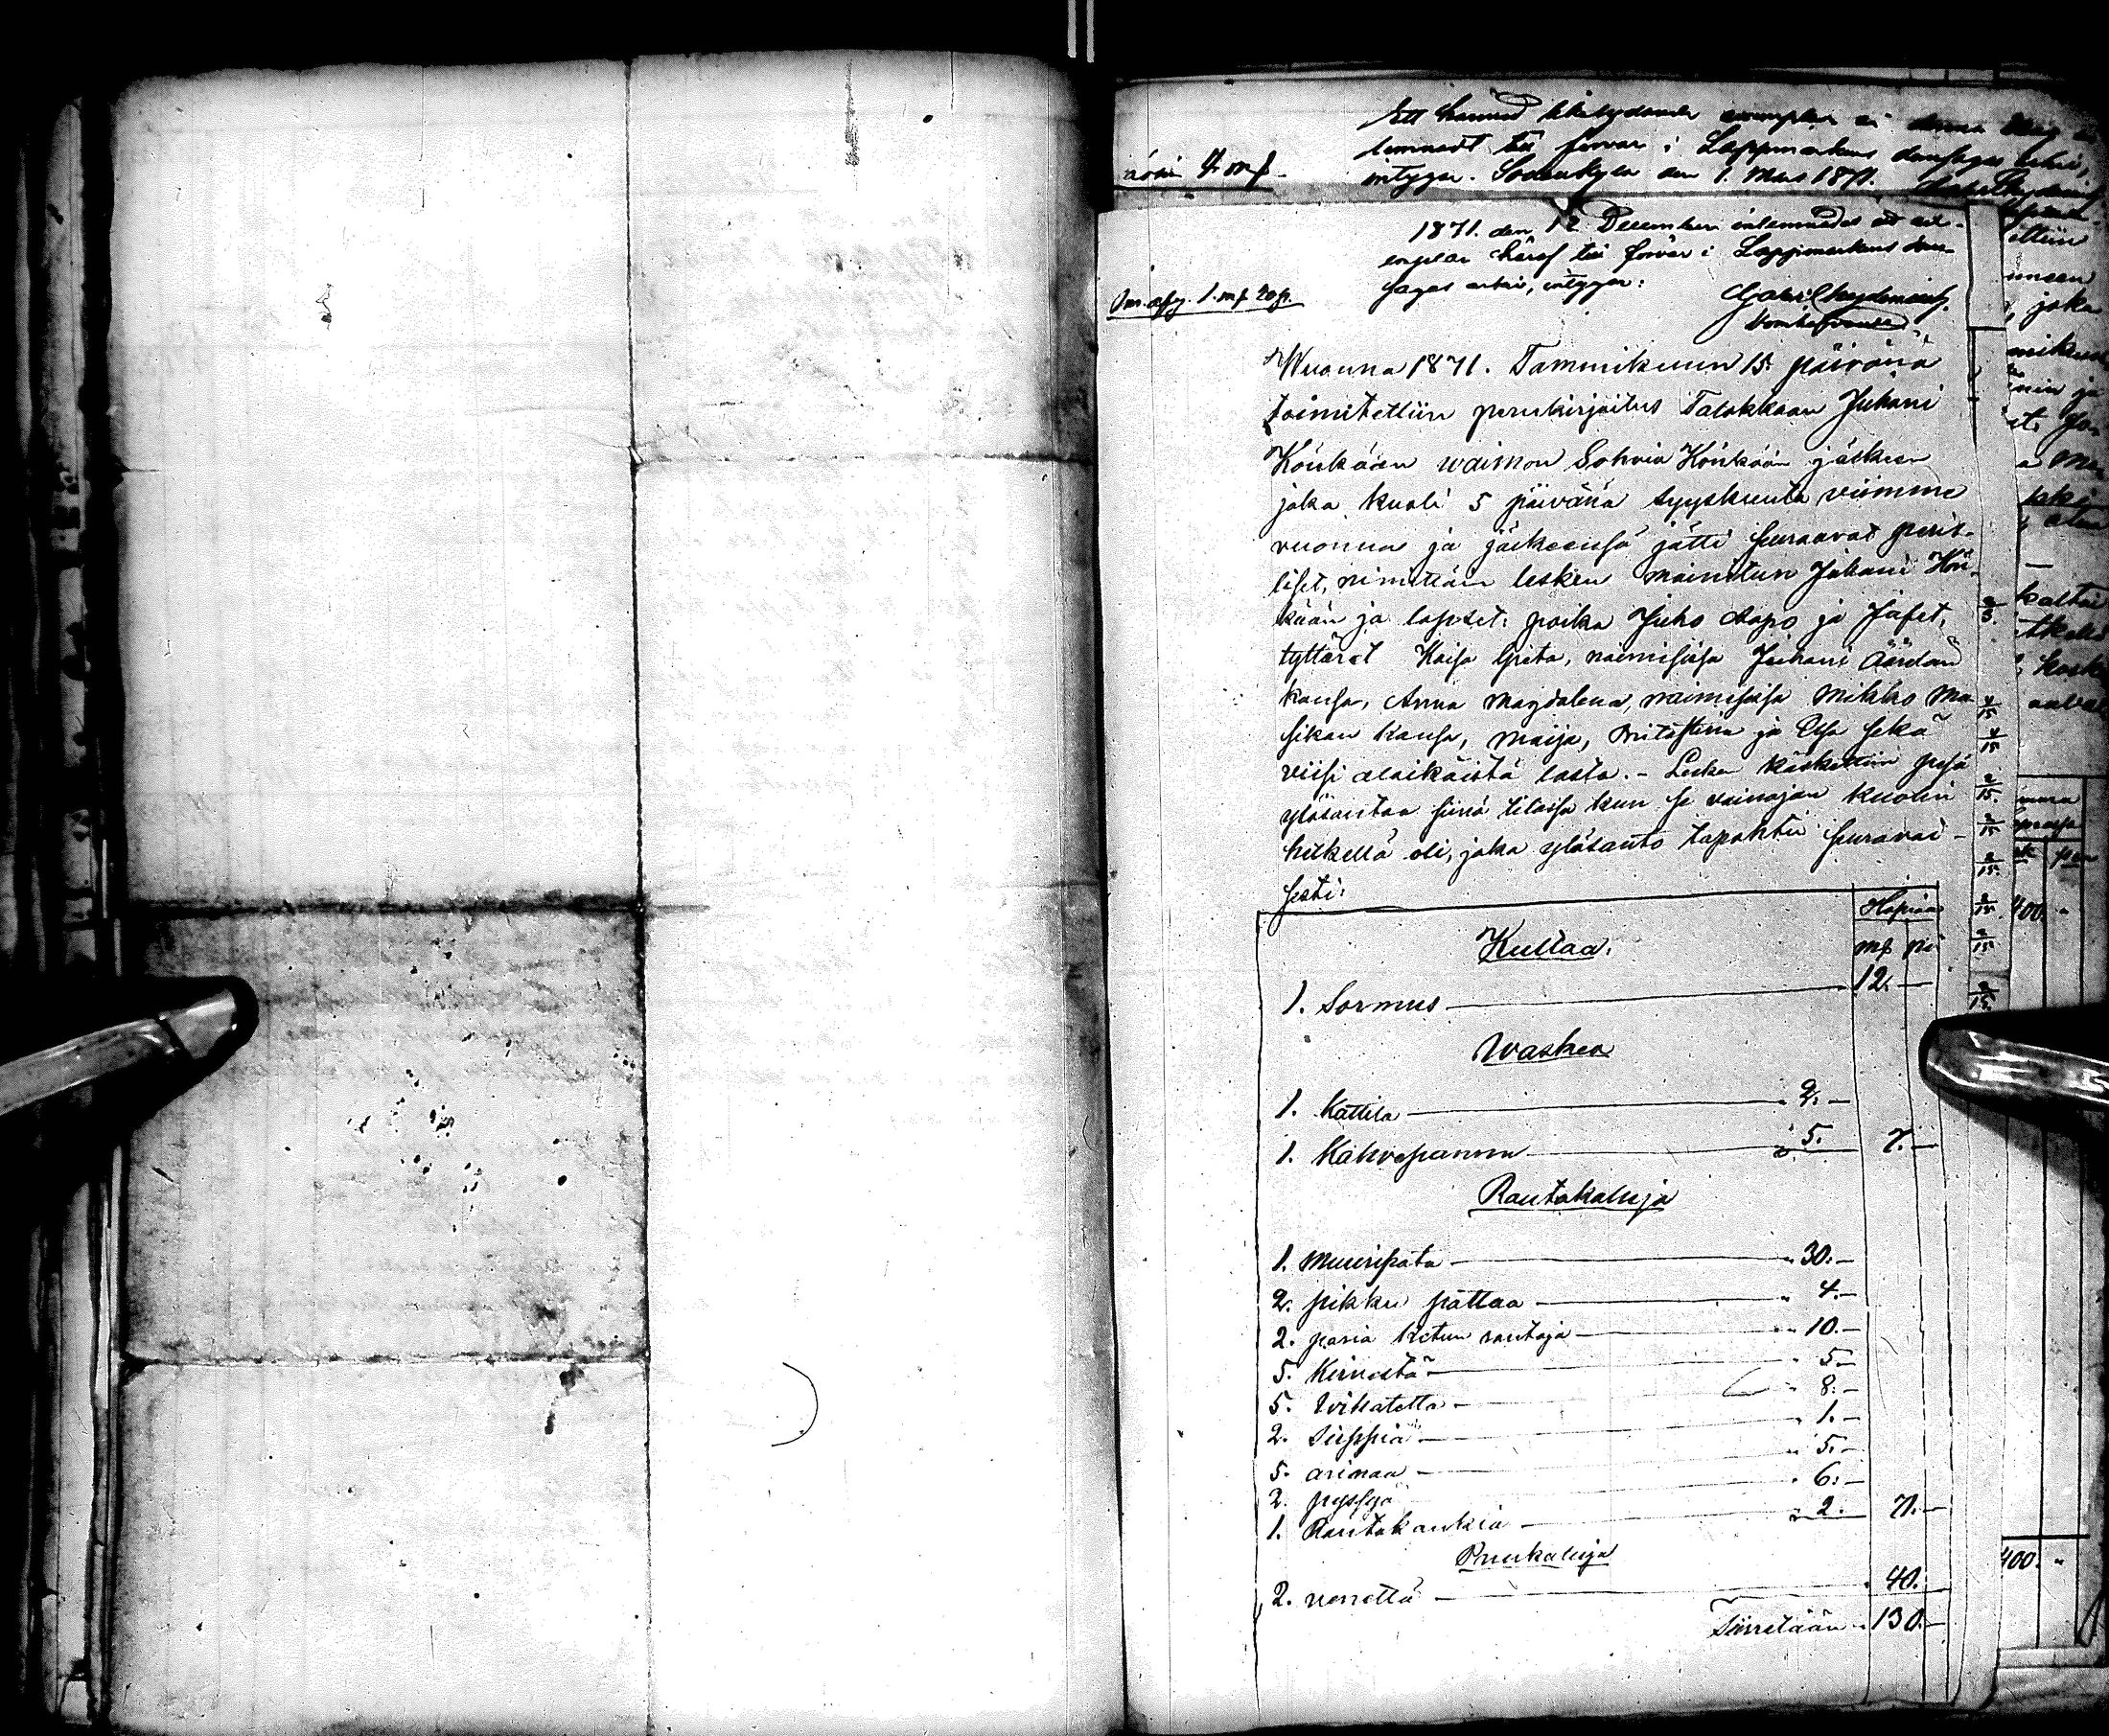 Ett härmed likalydande exemplar af denna
lemnadt till förvar i Lappmarkens domsagas arkiv,
intygar. Sodankylä den 1. Mars 1871.
4 mf.
1871. den 12 December inlemnades ett ex-
emplar häraf till förvar i Lappmarkens dom-
sagas arkiv, intygar:
1. mf 20 p.
Wuonna 1871. Tammikuun 15. päivänä
toimitettiin perukirjoitus Talokkaan Juhani
Könkään waimon Sohvia Könkään jälkeen
joka kuoli 5 päivänä syyskuuta viimme
vuonna ja jälkeeissä jätti seuraavat peril-
liset, nimittäin lesken mainitun Juhani Kön-
kään ja lapset: poika Juho Aapo ja Jafet,
tyttäret Kaisa Greta, naimisissa Juhani Äärelän
kansa, Anna Magdalena, naimisissa Mikko Ma
sikan kansa, Maija, Britastina ja Elsa sekä
viisi alaikäistä lasta. - Lesken käskettiin pesä
ylösantaa siinä tilassa kun se vainajan kuolin
hetkellä oli, joka ylösanto tapahtui seuraavai-
sesti:
Hopiaa
Kultaa. mf pii
1. Sormus 12. -
Waskea
1. Kattila " 2. -
1. Kahvepannu " 5. 7. -
Rautakaluja
1. Muuripata " 30. -
2. pikku pattaa " 4. -
2. paria ketun rautoja " 10. -
5. Kirvestä " 5. -
5. Wikatetta " 8. -
2. Sirppiä " 1. -
5. arinaa " 5. -
2. pyssyä " 6. -
1. Rautakankia " 2. 71. -
Puukaluja
2. venettä 40.
Siirretään " 130. -